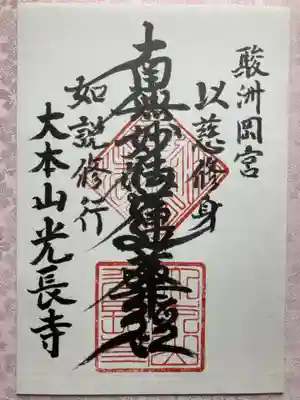 駿洲岡宮
以慈修身
南無妙法蓮華経
如説修行
大本山光長寺